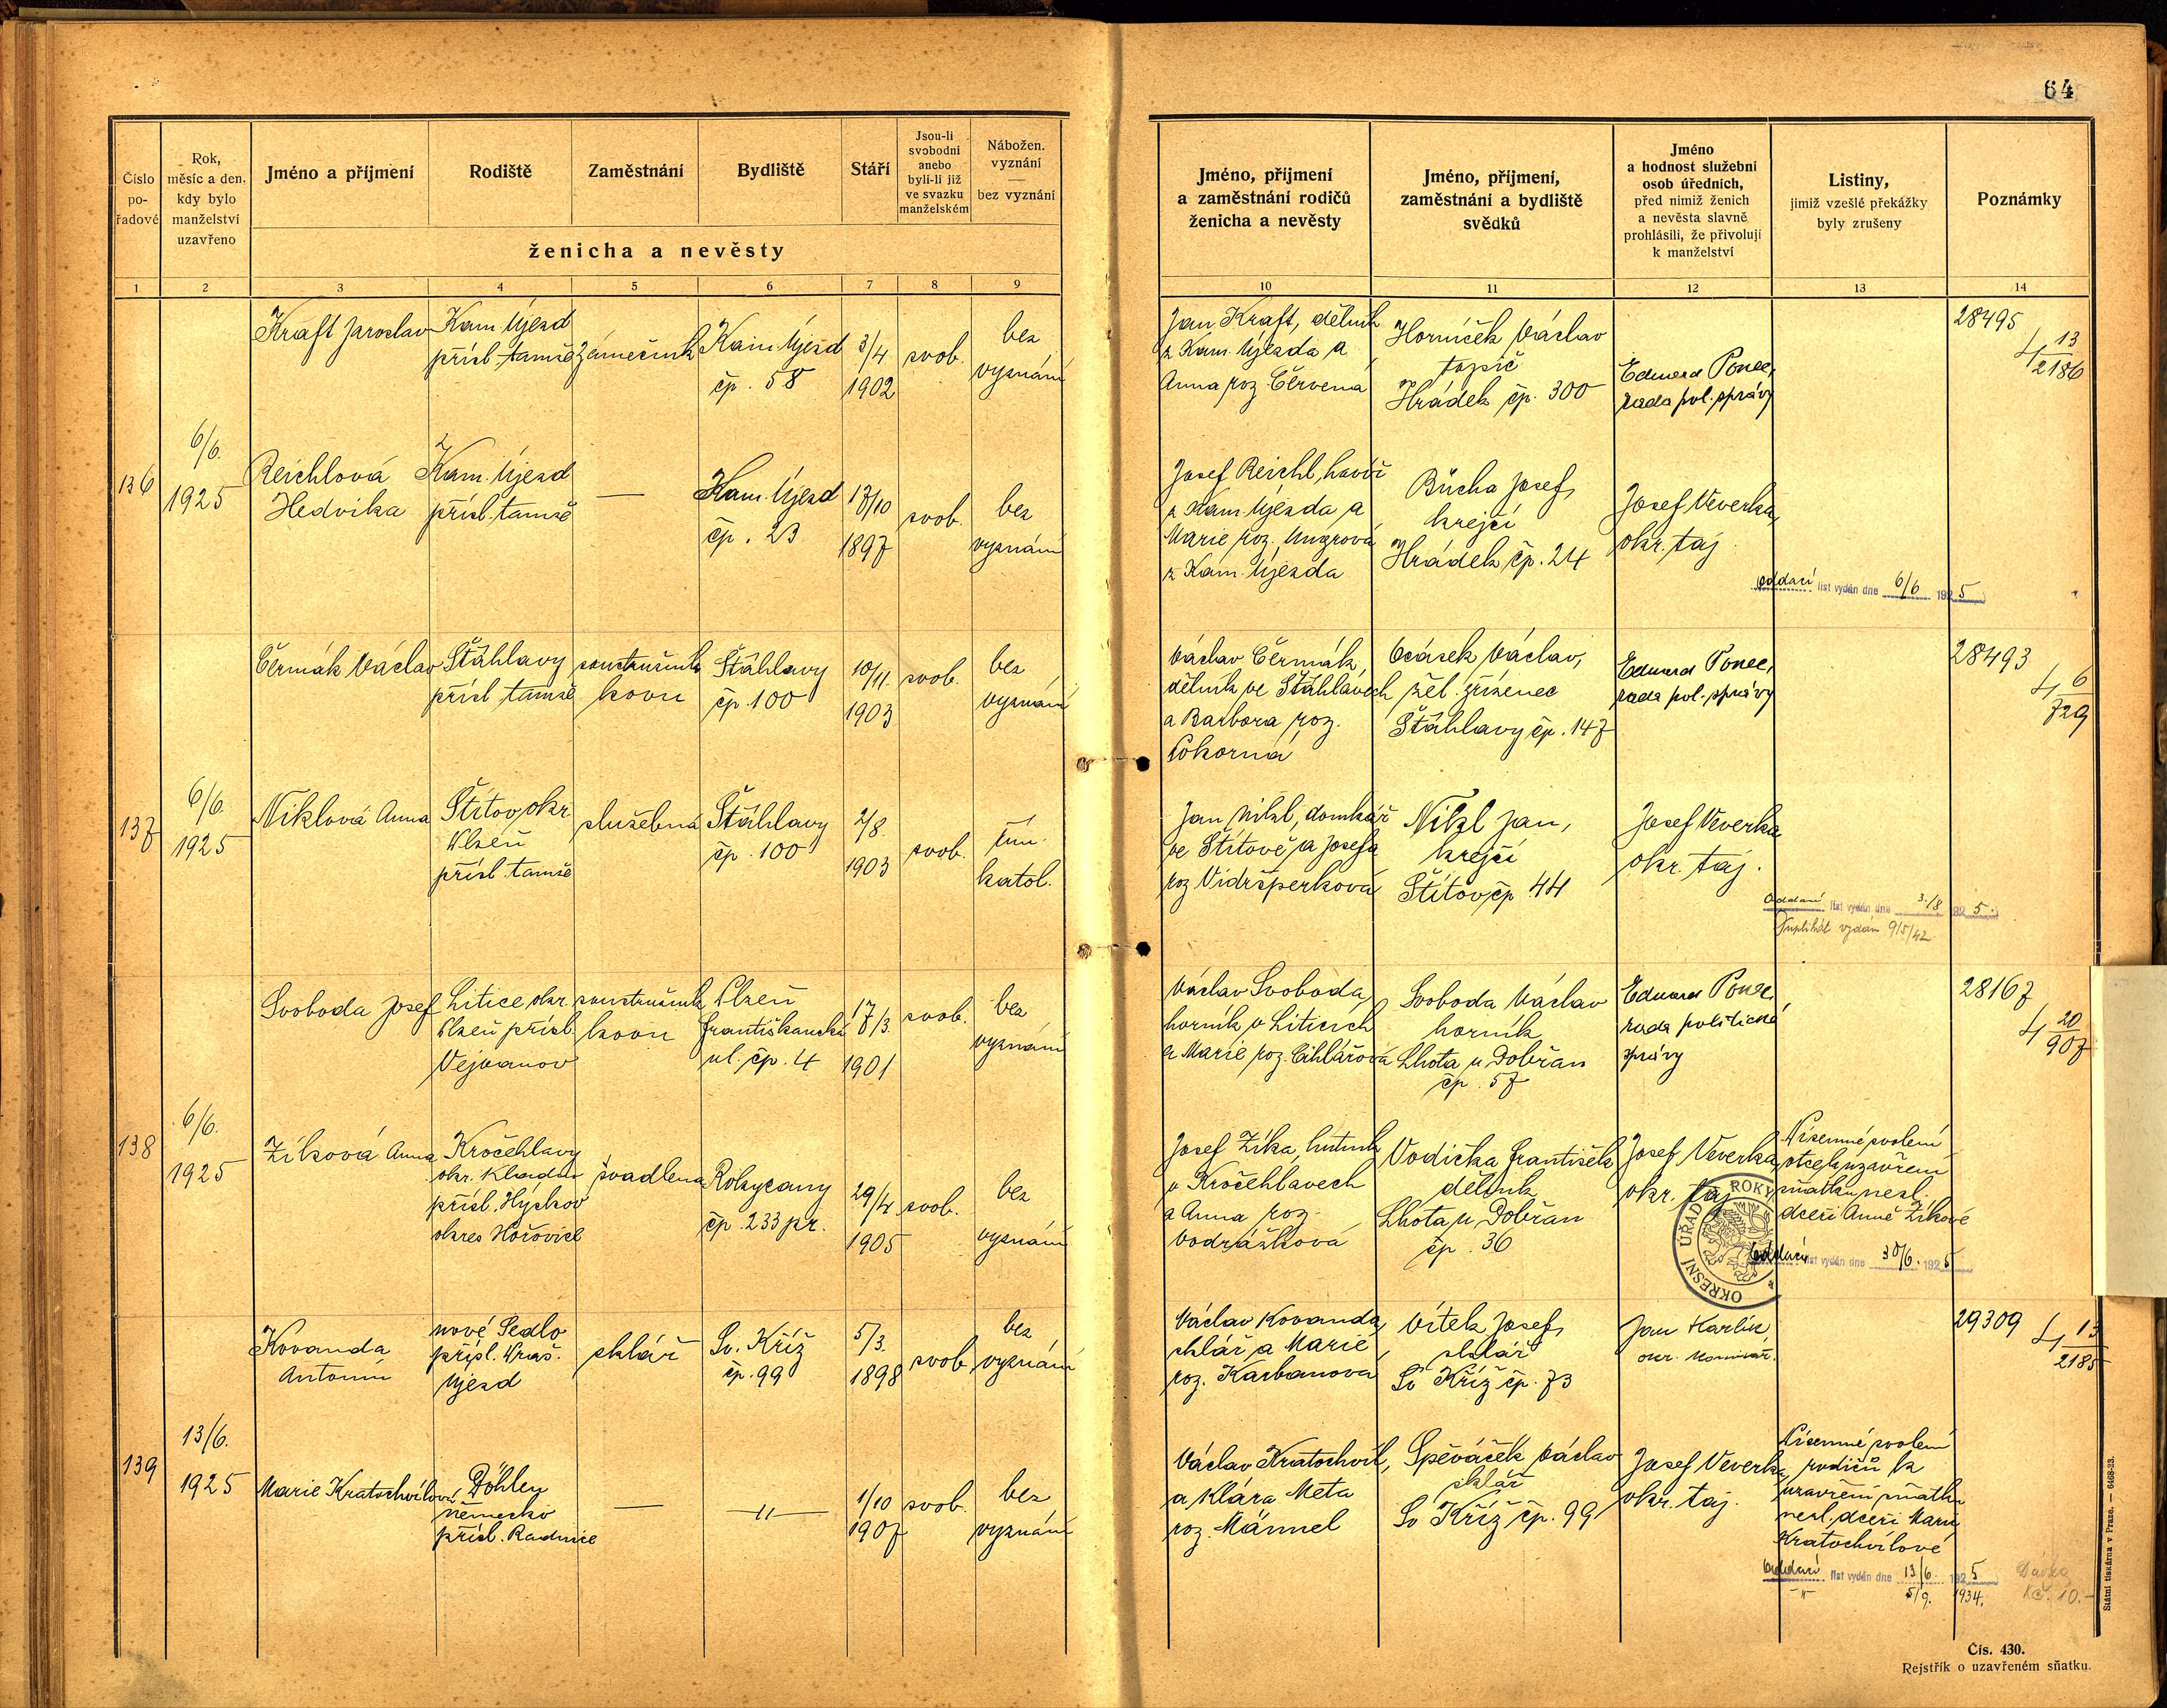 64
Číslo
po-
řadové
Rok,
měsíc a den,
kdy bylo
manželství
uzavřeno
Jméno a příjmení
Rodiště
Zaměstnání
Bydliště
Stáří
Jsou-li
svobodni
anebo
byli-li již
ve svazku
manželském
Nábožen.
vyznání
—
bez vyznání
ženicha a nevěsty
1 2 3 4 5 6 7 8 9
Jméno, příjmení
a zaměstnání rodičů
ženicha a nevěsty
Jméno, příjmení,
zaměstnání a bydliště
svědků
Jméno
a hodnost služební
osob úředních,
před nimiž ženich
a nevěsta slavně
prohlásili, že přivolují
k manželství
Listiny,
jimiž vzešlé překážky
byly zrušeny
Poznámky
10 11 12 13 14
136
6/6.
1925
Kraft Jaroslav
Kam. Újezd
přísl. tamže
zámečník
Kam. Újezd
čp. 58
3/4
1902
svob.
bez
vyznání
Jan Kraft, dělník
z Kam. Újezda a
Anna roz. Červená
Horníček Václav
topič
Hrádek čp. 300
Eduard Ponec,
rada pol. správy
28495
13
2186
Reichlová
Hedvika
Kam. Újezd
přísl. tamže
—
Kam. Újezd
čp. 23
17/10
1897
svob.
bez
vyznání
Josef Reichl, havíř
z Kam. Újezda a
Marie roz. Ungrová
z Kam. Újezda
Bůcha Josef,
krejčí
Hrádek, čp. 24
Josef Veverka,
okr. taj.
oddací list vydán dne 6/6 1925
137
6/6.
1925
Čermák Václav
Šťáhlavy
přísl. tamže
soustružník
kovu
Šťáhlavy
čp. 100
10/11
1903
svob.
bez
vyznání
Václav Čermák,
dělník ve Šťáhlavech
a Barbora roz.
Pokorná
Ocásek Václav,
žel. zřízenec
Šťáhlavy čp. 147
Eduard Ponec,
rada pol. správy
28493
6
729
Niklová Anna
Štítov, okr.
Plzeň
přísl. tamže
služebná
Šťáhlavy
čp. 100
2/8.
1903
svob.
řím.
katol.
Jan Nikl, domkář
ve Štítově a Josefa
roz. Vidršperková
Nikl Jan,
krejčí
Štítov, čp. 44
Josef Veverka
okr. taj.
Oddací list vydán dne 3./8 1925.
Duplikát vydán 9/5/42
138
6/6.
1925
Svoboda Josef
Litice okr.
Plzeň přísl.
Vejvanov
soustružník
kovu
Plzeň
Františkánská
ul. čp. 4
17/3.
1901
svob.
bez
vyznání
Václav Svoboda,
horník v Liticích
a Marie roz. Cihlářová
Svoboda Václav
horník
Lhota u Dobřan
čp. 57
Eduard Ponec,
rada politické
správy
28167
20
907
Zíková Anna
Kročehlavy
okr. Kladno
přísl. Hýskov
okres Hořovice
švadlena
Rokycany
čp. 233 pr.
29/4
1905
svob.
bez
vyznání
Josef Zíka, hutník
v Kročehlavech
a Anna roz.
Vodrážková
Vodička František
dělník
Lhota u Dobřan
čp. 36
Josef Veverka,
okr. taj.
Písemné svolení
otce k uzavření
sňatku nezl.
dceři Anně Zíkové
OKRESNÍ ÚŘAD ROKY
oddací list vydán dne 30/6. 1925
139
13/6.
1925
Kovanda
Antonín
nové Sedlo
přísl.
Újezd
sklář
Sv. Kříž
čp. 99
5/3.
1898
svob.
bez
vyznání
Václav Kovanda,
sklář a Marie
roz. Karbanová
Vítek Josef,
sklář
Sv. Kříž čp. 73
Jan Karlík,
okr.
29309
13
2185
Marie Kratochvílová
Döhlen
Německo
přísl. Radnice
—
—"—
1/10
1907
svob.
bez
vyznání
Václav Kratochvíl,
a Klára Meta
roz. Männel
Spěváček Václav
sklář
Sv. Kříž čp. 99
Josef Veverka,
okr. taj.
Písemné svolení
rodičů k
uzavření sňatku
nezl. dceři Marii
Kratochvílové
oddací list vydán dne 13/6. 1925
-"- 5/9. 1934.
Dávka
Kč. 10.-
Státní tiskárna v Praze. — 6468-23.
Čís. 430.
Rejstřík o uzavřeném sňatku.